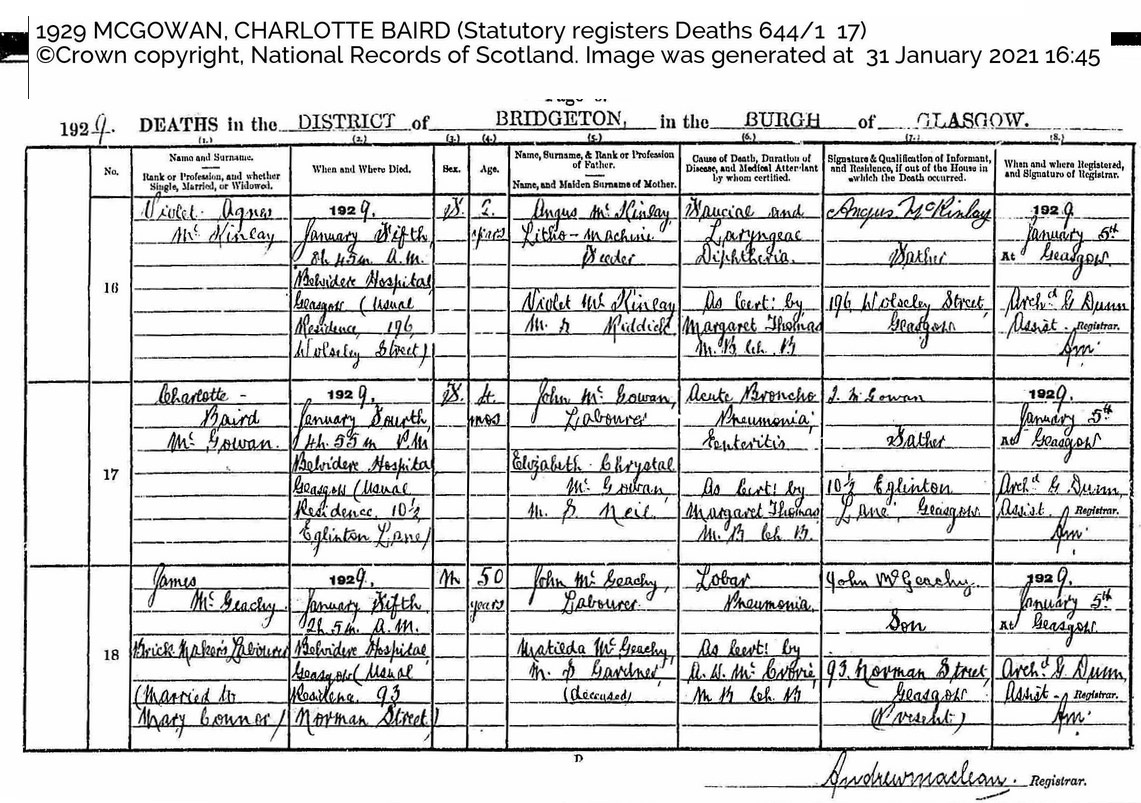 1929 MCGOWAN, CHARLOTTE BAIRD (Statutory registers Deaths 644/1 17)
©Crown copyright, National Records of Scotland. Image was generated at 31 January 2021 16:45
1929. DEATHS in the DISTRICT of BRIDGETON, in the BURGH of GLASGOW.
(1.) (2.) (3.) (4.) (5.) (6.) (7.) (8.)
No.
Name and Surname.
Rank or Profession, and whether
Single, Married, or Widowed.
When and Where Died.
Sex.
Age.
Name, Surname, & Rank or Profession
of Father.
Name, and Maiden Surname of Mother.
Cause of Death, Duration of
Disease, and Medical Attendant
by whom certified.
Signature & Qualification of Informant,
and Residence, if out of the House in
which the Death occurred.
When and where Registered,
and Signature of Registrar.
16
Violet Agnes
McKinlay
1929.
January Fifth,
8h. 45m. A.M.
Belvidere Hospital
Glasgow (Usual
Residence, 196
Wolseley Street)
F.
2.
years
Angus McKinlay,
Litho-machine
Feeder
Violet McKinlay
M. S. Riddick
Faucial and
Laryngeal
Diphtheria.
As Cert: by
Margaret Thomas
M.B. Ch. B.
Angus McKinlay
Father
196 Wolseley Street,
Glasgow
1929.
January 5th
At Glasgow.
Archd G Dunn
Assist. Registrar.
17
Charlotte -
Baird
McGowan.
1929.
January Fourth,
4h. 55m P.M.
Belvidere Hospital
Glasgow (Usual
Residence, 10½
Eglinton Lane)
F.
4.
mos
John McGowan,
Labourer
Elizabeth Chrystal
McGowan,
M. S. Neil
Acute Broncho
Pneumonia;
Enteritis
As Cert: by
Margaret Thomas
M.B. Ch. B.
J. McGowan
Father
10½ Eglinton
Lane, Glasgow
1929.
January 5th
At Glasgow
Archd G. Dunn,
Assist. Registrar.
18
James
McGeachy.
Brick Maker's Labourer
(Married to
Mary Connor)
1929.
January Fifth
2h. 5m. A.M.
Belvidere Hospital,
Glasgow (Usual
Residence, 93
Norman Street)
M
50
years
John McGeachy,
Labourer.
Matilda McGeachy,
M. S. Gardner,
(deceased)
Lobar
Pneumonia.
As Cert: by
M.B. Ch. B.
John McGeachy.
Son
93. Norman Street,
Glasgow
(Present)
1929.
January 5th
At Glasgow.
Archd G. Dunn,
Assist. Registrar.
D
Andrew Maclean. Registrar.